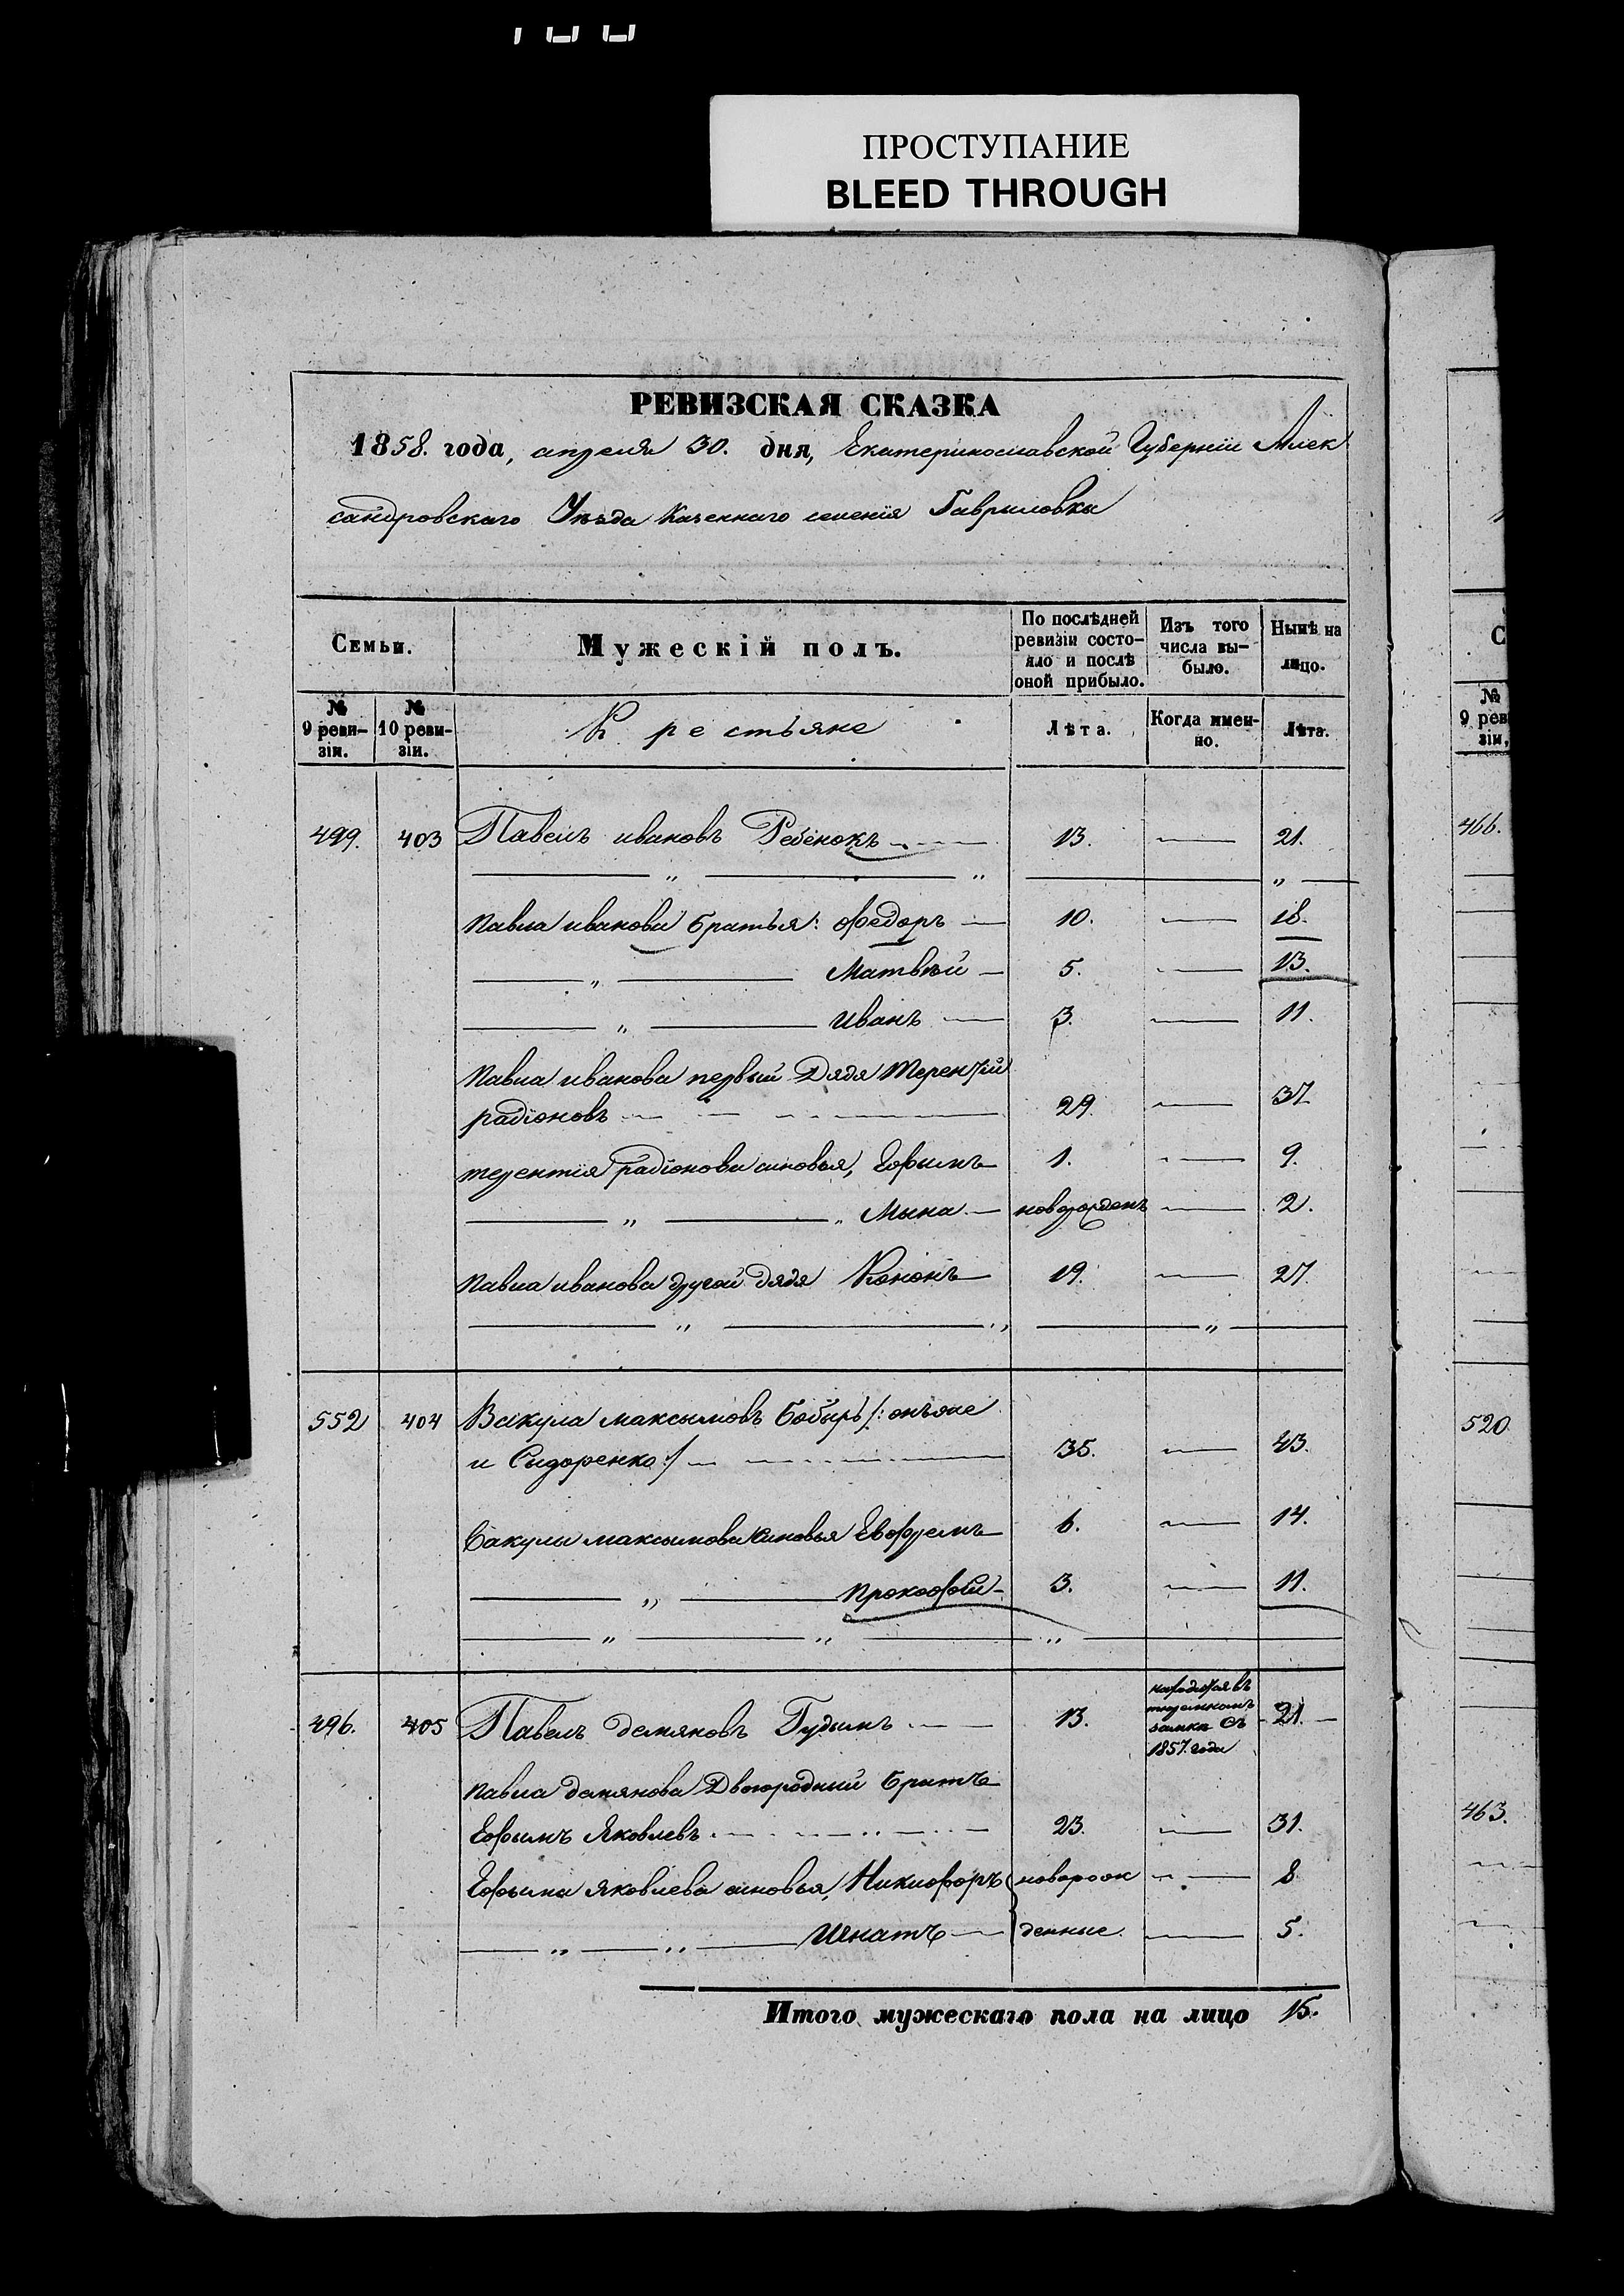 ПРОСТУПАНИЕ
BLEED THROUGH
РЕВИЗСКАЯ СКАЗКА
1858. года, апреля 30. дня, Екатеринославской Губерніи Алек
сандровскаго Уѣзда Казеннаго селенія Гавриловка
Семьи.
Мужескій полъ.
По послѣдней ревизіи состо-
яло и послѣ оной прибыло.
Изъ того числа вы-
было.
Нынѣ на лицо.
№ 9 реви-
зіи.
№ 10 реви-
зіи.
Крестьяне
Лѣта.
Когда имен-
но.
Лѣта.
499. 403 Павелъ ивановъ Ребенокъ 13. 21.
Павла иванова братья: Федоръ 10. 18.
Матвѣй 5. 13.
Иванъ 3. 11.
Павла иванова первый Дядя Терентій
радіоновъ 29. 37.
терентія радіонова сыновья, Ефимъ 1. 9.
Мына новорожденъ 2.
Павла иванова другой дядя Кононъ 19. 27.
552 404 Вакула максимовъ Бобырь /: онъже
и Сидоренко :/ 35. 43.
Вакулы максимова сыновья Евфремъ 6. 14.
Прокофій 3. 11.
496. 405 Павелъ демяновъ Гудымъ 13. находится въ 21.
тюремномъ
замкѣ съ
1857. года
Павла демянова Двоюродный братъ
Ефимъ Яковлевъ 23. 31.
Ефима Яковлева сыновья, Никифоръ новорож 8
Игнатъ денные 5.
Итого мужескаго пола на лицо 15.
С
№
9 рев
зіи,
466.
520.
463.